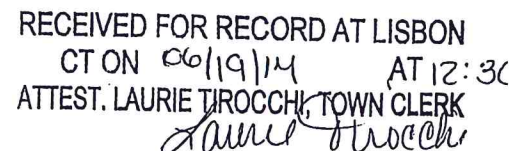 RECEIVED FOR RECORD AT LISBON
CT ON 06/19/14 AT 12:30
ATTEST. LAURIE TIROCCHI, TOWN CLERK
Laurie Tirocchi